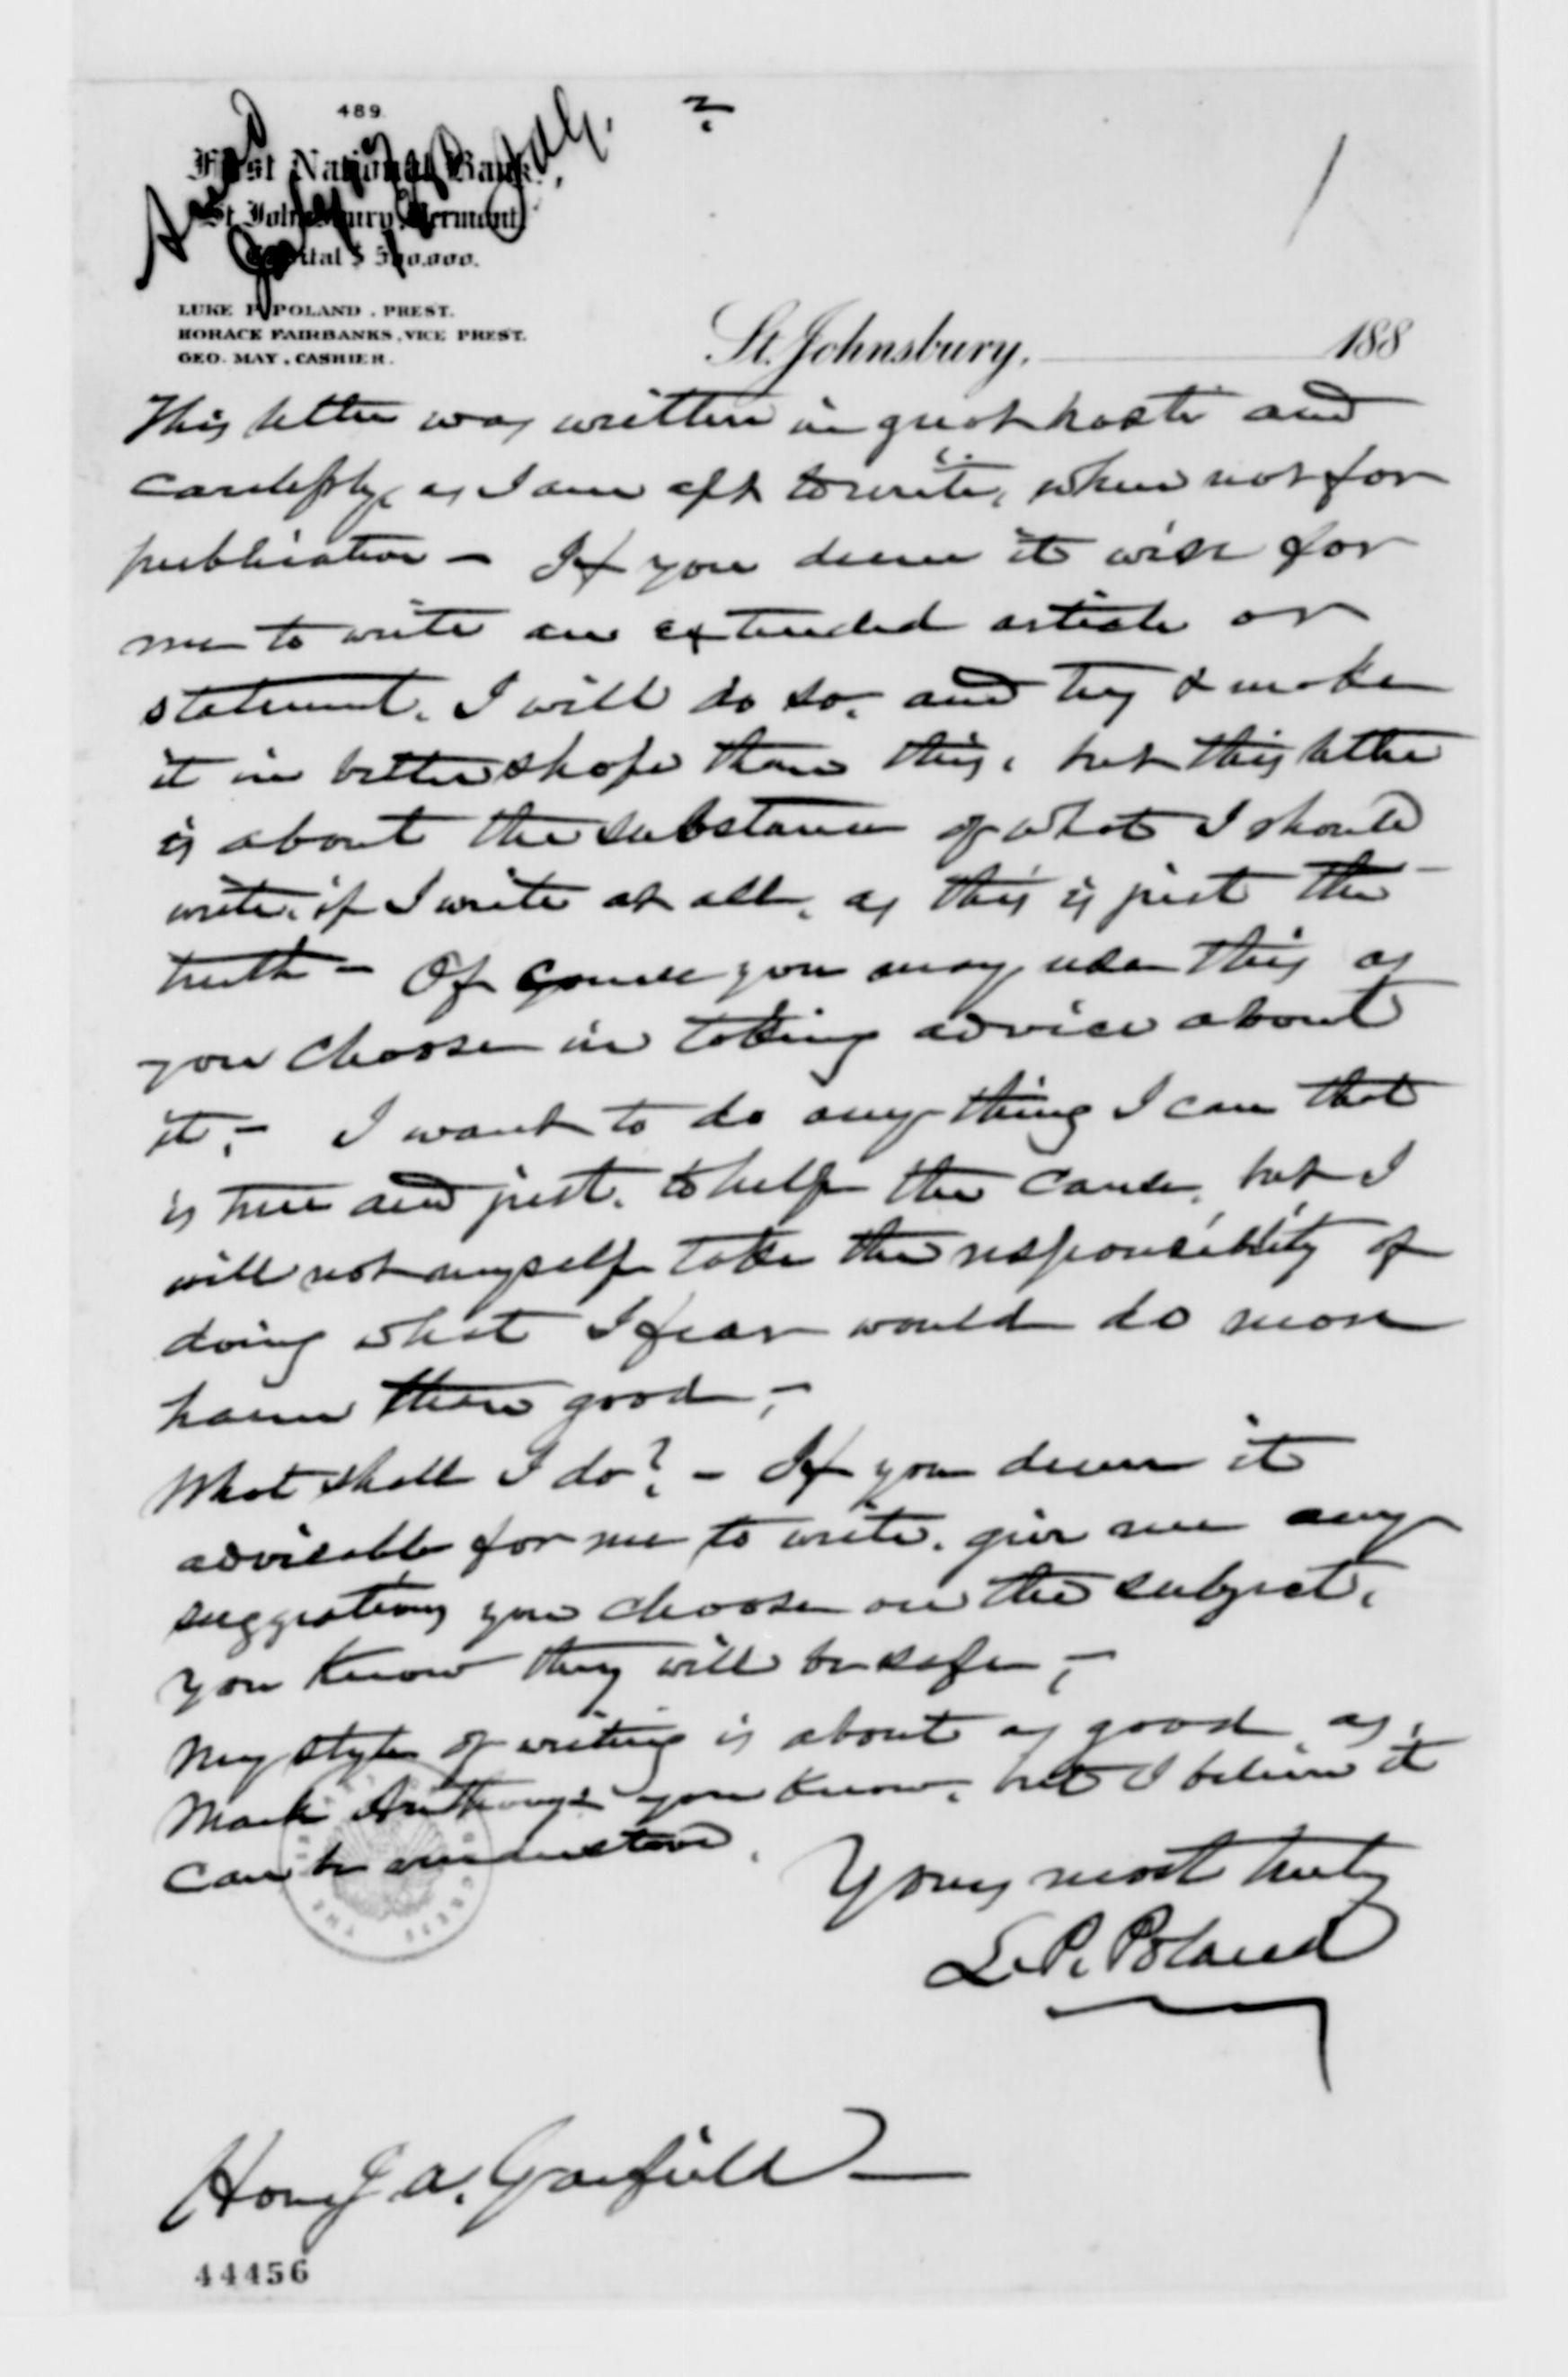 489
?
First National Bank,
St. Johnsbury, Vermont,
Capital $ 500.000.
LUKE P. POLAND, PREST.
HORACE FAIRBANKS, VICE PREST.
GEO. MAY, CASHIER.
St. Johnsbury, 188
This letter was written in great haste and
carelessly, as I am apt to write, when not for
publication - If you deem it wise for
me to write an extended article or
statement, I will do so, and try & make
it in better shape than this, but this letter
is about the substance of what I should
write, if I write at all, as this is just the
truth - Of course you may use this as
you choose in taking advice about
it. - I want to do any thing I can that
is true and just, to help the cause, but I
will not myself take the responsibility of
doing what I fear would do more
harm than good, -
What shall I do? - If you deem it
advisable for me to write, give me any
suggestions you choose on the subject,
you know they will be safe, -
My style of writing is about as good as,
Mark Anthony's you know, but I believe it
can be understood.
Yours most truly
L. P. Poland
Hon J. A. Garfield -
44456